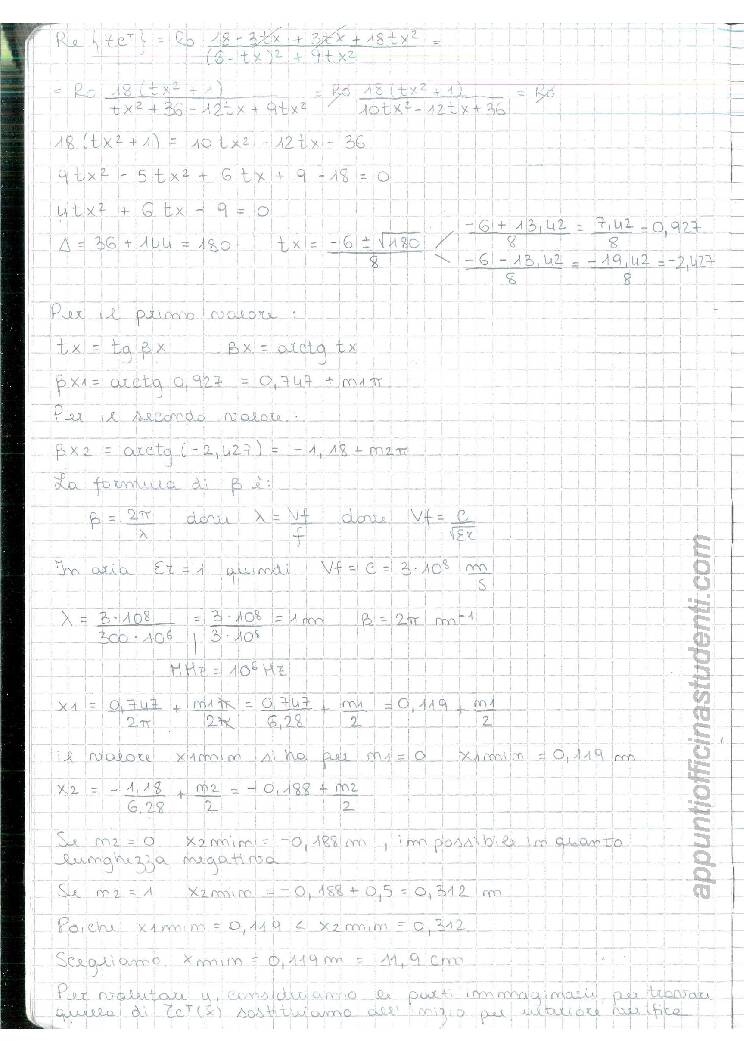 Re {tc^T} = Ro (18 - 3tx + 3tx + 18tx²)/((6-tx)² + 9tx²) =
= Ro 18(tx² + 1)/(tx² + 36 - 12tx + 9tx²) = Ro 18(tx² + 1)/(10tx² - 12tx + 36) = Ro
18(tx² + 1) = 10tx² - 12tx - 36
9tx² - 5tx² + 6tx + 9 - 18 = 0
4tx² + 6tx - 9 = 0
Δ = 36 + 144 = 180 tx = (-6 ± √180)/8
(-6 + 13,42)/8 = 7,42/8 = 0,927
(-6 - 13,42)/8 = -19,42/8 = -2,427
Per il primo valore :
tx = tg βx βx = arctg tx
βx1 = arctg 0,927 = 0,747 + m1π
Per il secondo valore :
βx2 = arctg (-2,427) = -1,18 + m2π
La formula di β è:
β = 2π/λ dove λ = Vf/f dove Vf = C/√Er
In aria Er = 1 quindi Vf = C = 3·10⁸ m/s
λ = 3·10⁸/300·10⁶ = 3·10⁸/3·10⁸ = 1m β = 2π m⁻¹
MHz = 10⁶ Hz
x1 = 0,747/2π + m1π/2π = 0,747/6,28 + m1/2 = 0,119 + m1/2
il valore x1min si ha per m1 = 0 x1min = 0,119 m
x2 = -1,18/6,28 + m2/2 = -0,188 + m2/2
Se m2 = 0 x2min = -0,188m , impossibile in quanto
lunghezza negativa
Se m2 = 1 x2min = -0,188 + 0,5 = 0,312 m
Poiche x1min = 0,119 < x2min = 0,312
Scegliamo xmin = 0,119m = 11,9 cm
Per valutare y, consideriamo le parti immaginarie, per trovare
quella di (x) sostituiamo all'inizio per ulteriore verifica
appuntiofficinastudenti.com